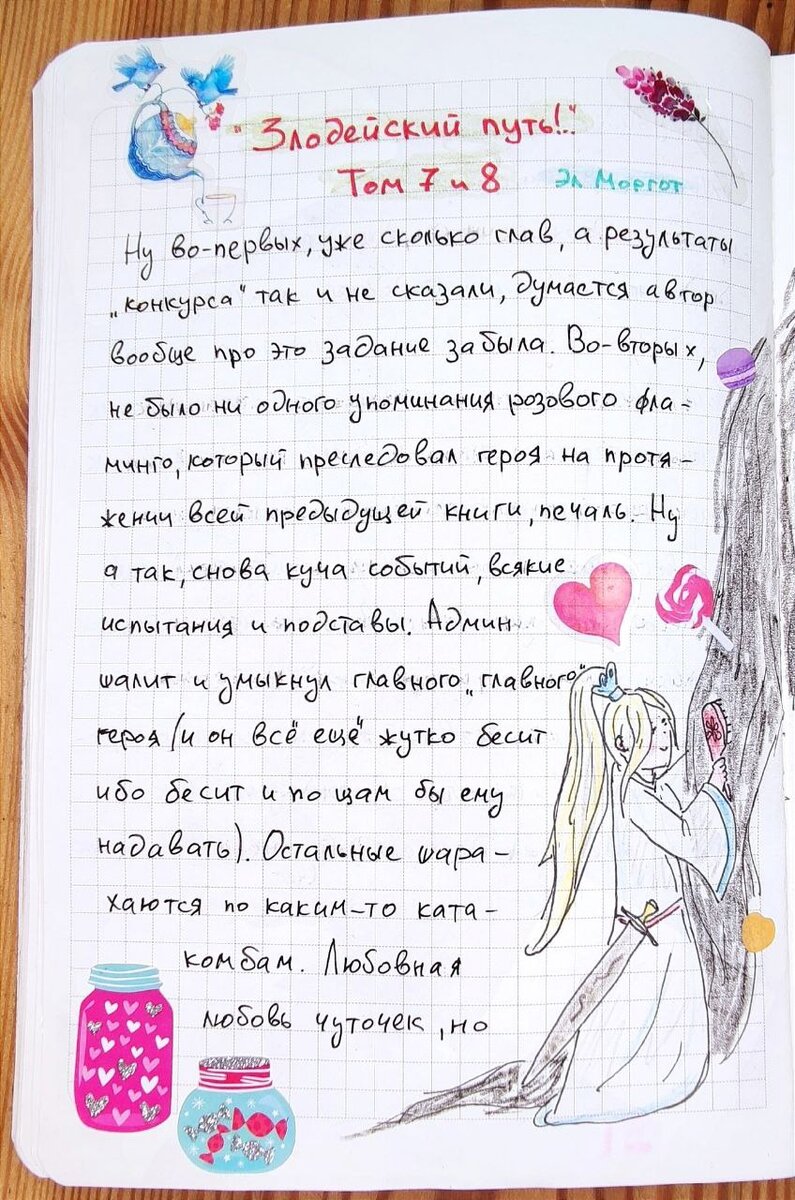 "Злодейский путь!.."
Том 7 и 8 Эл Моргот
Ну во-первых, уже сколько глав, а результаты
„конкурса" так и не сказали, думается автор
вообще про это задание забыла. Во-вторых,
не было ни одного упоминания розового фла-
минго, который преследовал героя на протя-
жении всей предыдущей книги, печаль. Ну
а так, снова куча событий, всякие
испытания и подставы. Админ
шалит и умыкнул главного „главного"
героя (и он всё "ещё" жутко бесит
ибо бесит и по щам бы ему
надавать). Остальные шара-
хаются по каким-то ката-
комбам. Любовная
любовь чуточек, но